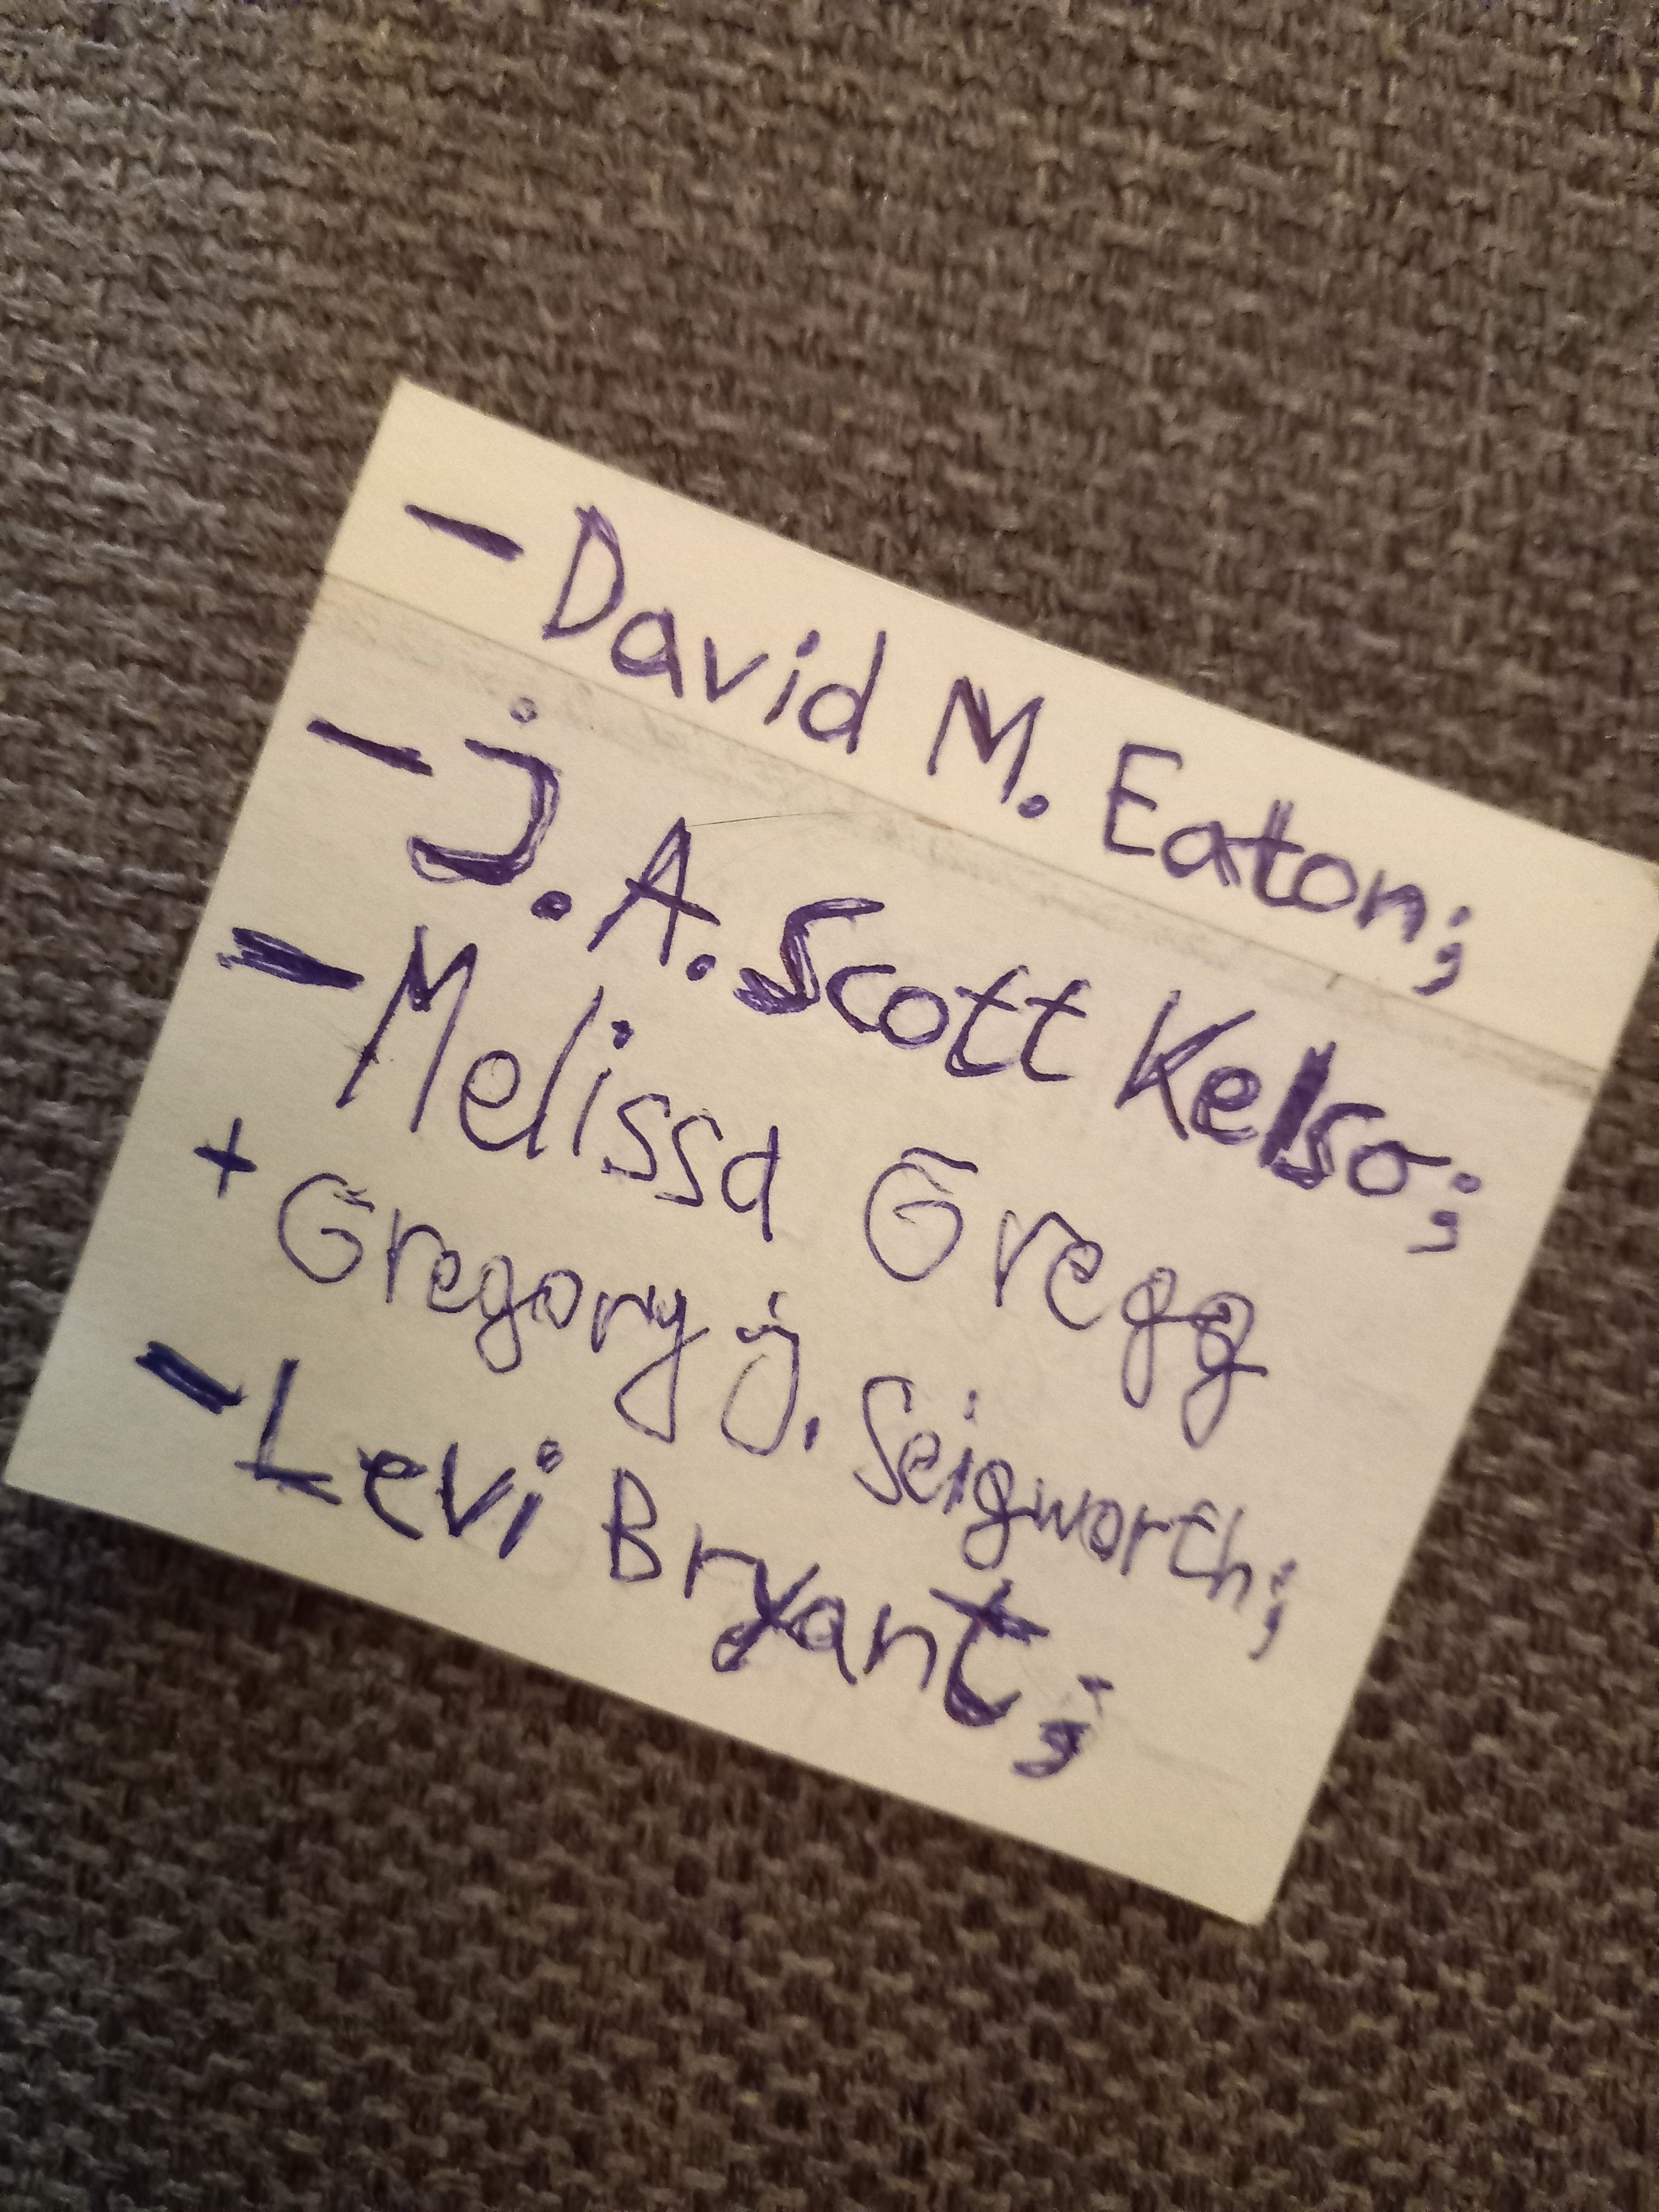 - David M. Eaton;
- J. A. Scott Kelso;
- Melissa Gregg
+ Gregory J. Seigworth;
- Levi Bryant;